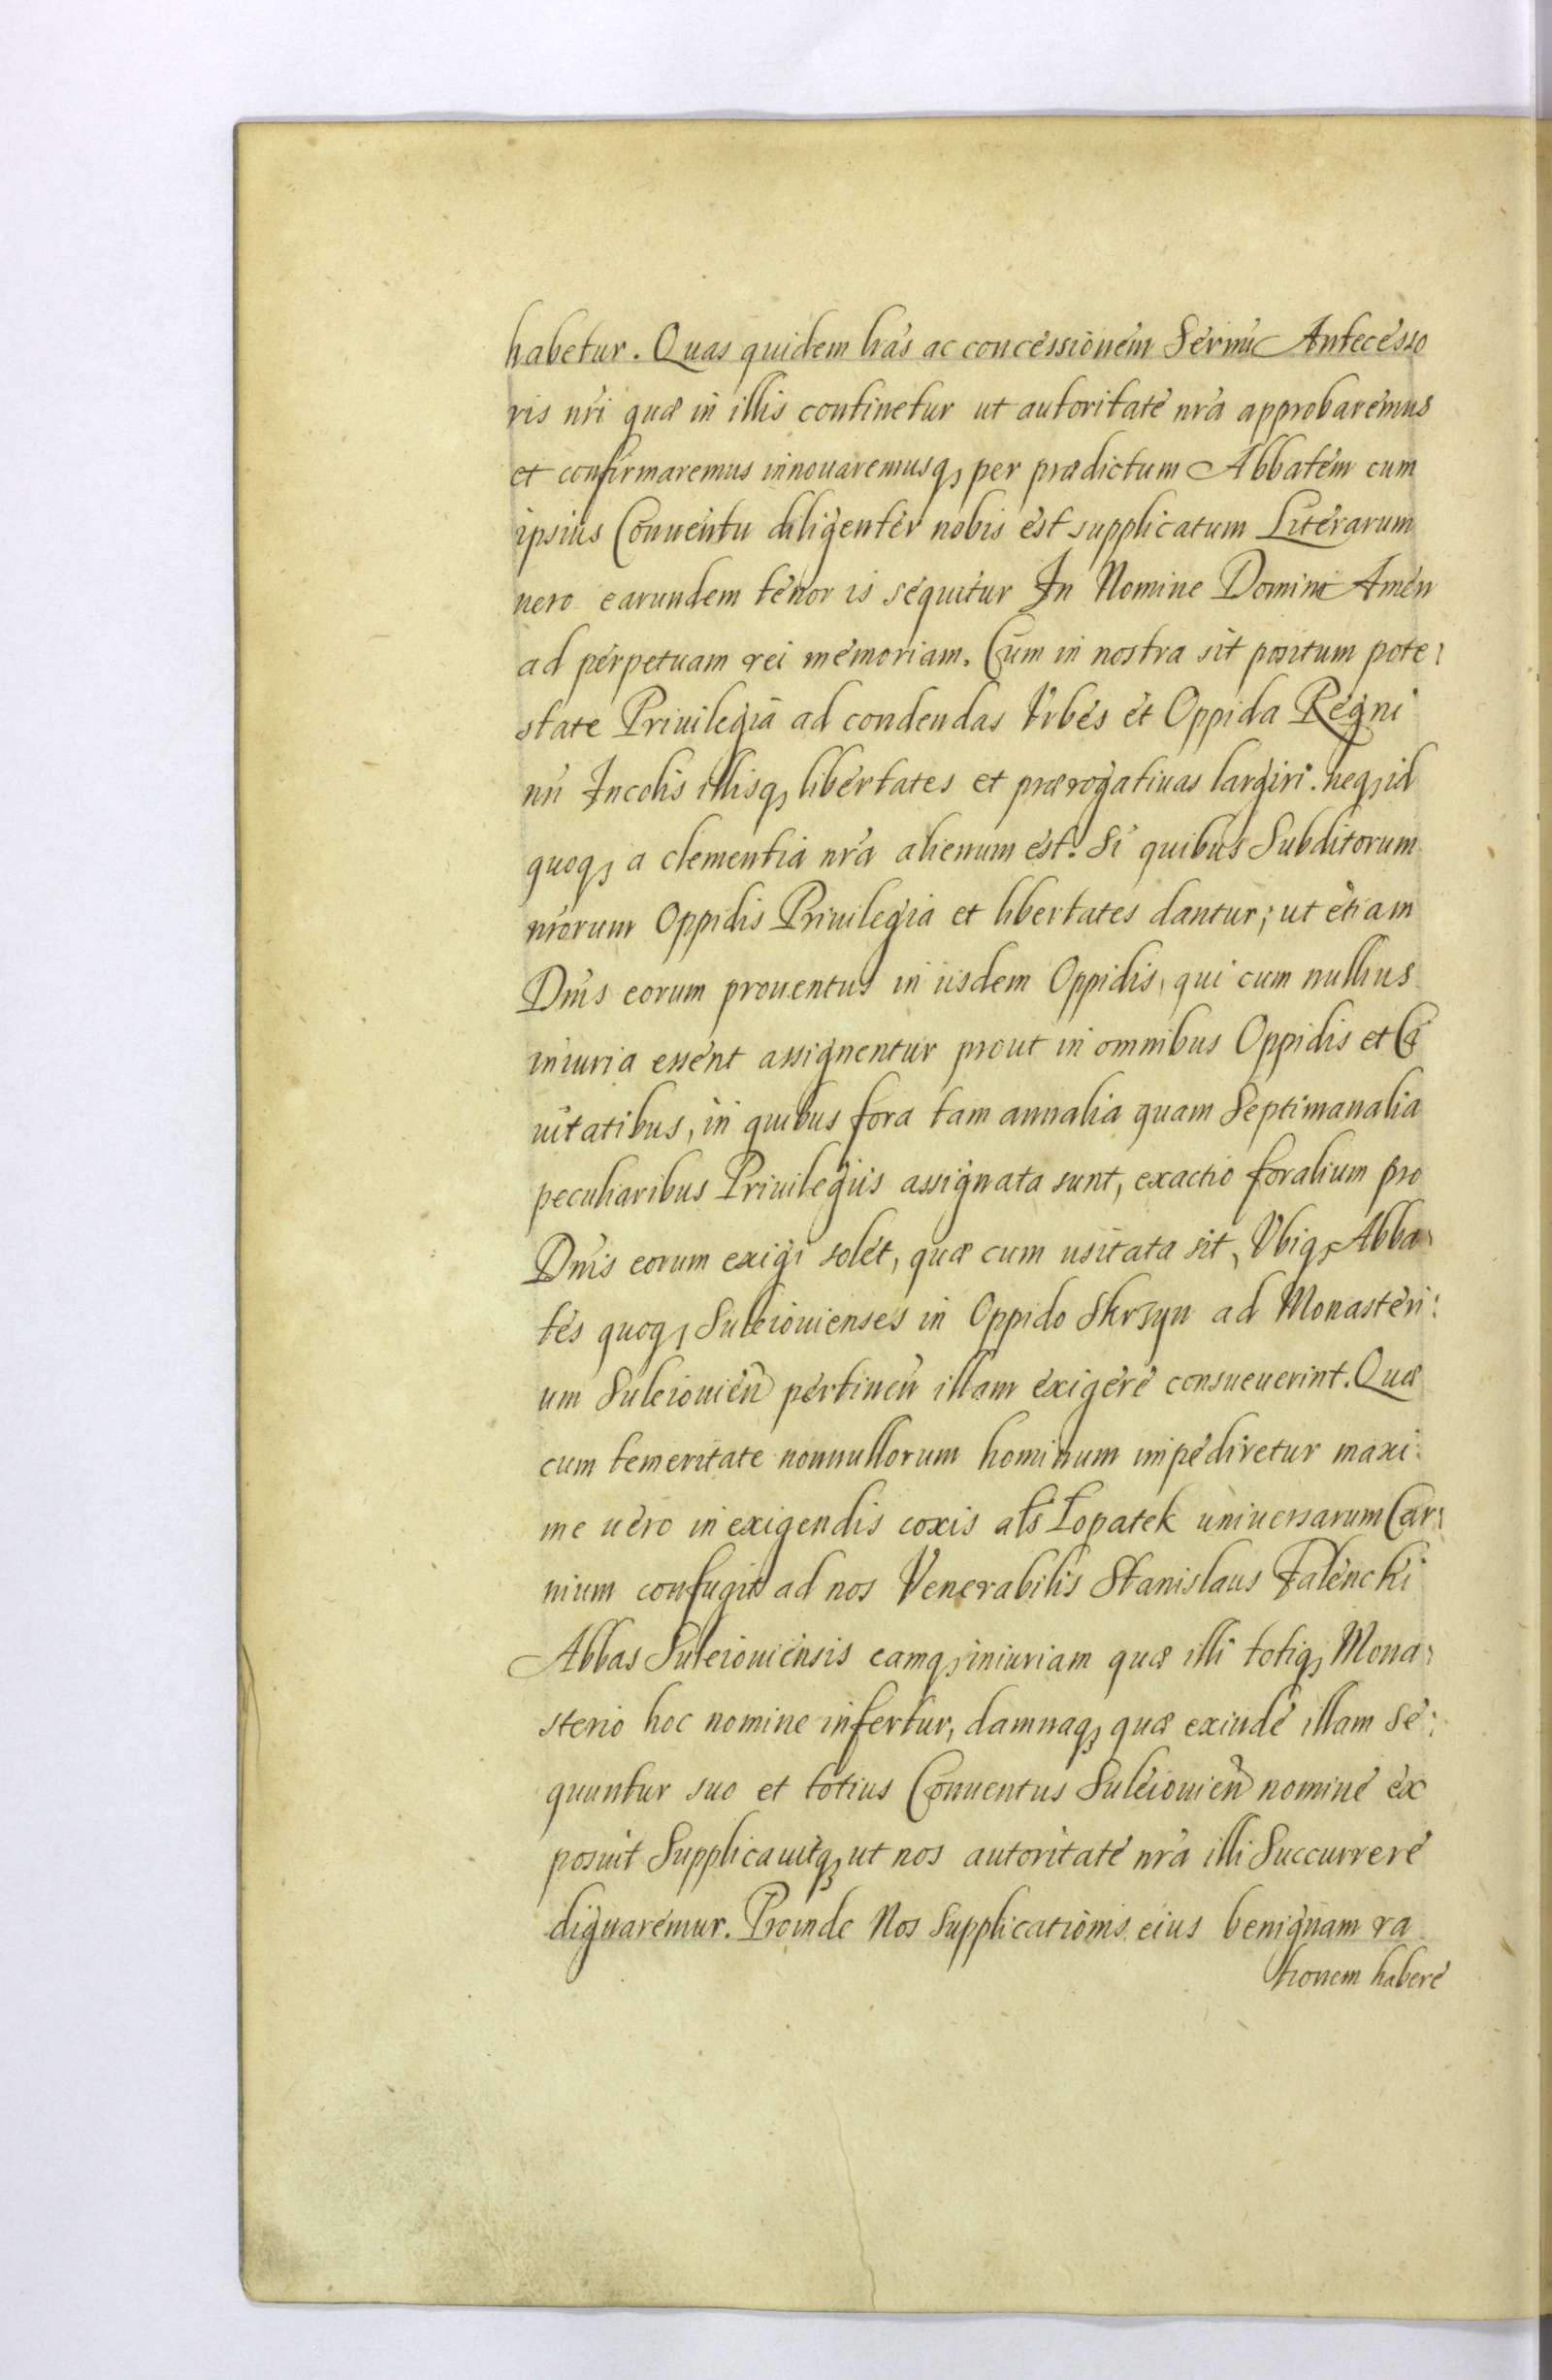 habetur. Quas quidem lrãs ac concessionem Sermi Antecesso
ris nri quæ in illis continetur ut autoritate nrã approbaremus
et confirmaremus innouaremusq, per prædictum Abbatem cum
ipsius Conuentu diligenter nobis est supplicatum Literarum
uero earundem tenor is sequitur In Nomine Domini Amen
ad perpetuam rei memoriam. Cum in nostra sit positum pote:
state Priuilegia ad condendas Vrbes et Oppida Regni
nri Incolis illisq, libertates et prærogatiuas largiri. neq, id
quoq, a clementia nrã alienum est. Si quibus Subditorum
nrorum Oppidis Priuilegia et libertates dantur; ut etiam
Dnis eorum prouentus in iisdem Oppidis, qui cum nullius
iniuria essent assignentur prout in omnibus Oppidis et Ci
uitatibus, in quibus fora tam annalia quam Septimanalia
peculiaribus Priuilegiis assignata sunt, exactio foralium pro
Dnis eorum exigi solet, quæ cum usitata sit, Vbiq, Abba:
tes quoq, Suleiouienses in Oppido Skrzyn ad Monasteri:
um Suleiouien pertinen illam exigere consueuerint. Quæ
cum temeritate nonnullorum hominum impediretur maxi:
me uero in exigendis coxis als Łopatek uniuersarum Car:
nium confugit ad nos Venerabilis Stanislaus Falencki
Abbas Suleiouiensis eamq, iniuriam quæ illi totiq, Mona:
sterio hoc nomine infertur, damnaq, quæ exinde illam se:
quuntur suo et totius Conuentus Suleiouien nomine ex
posuit Supplicauitq, ut nos autoritate nrã illi Succurrere
dignaremur. Proinde Nos Supplicationis eius benignam ra
tionem habere